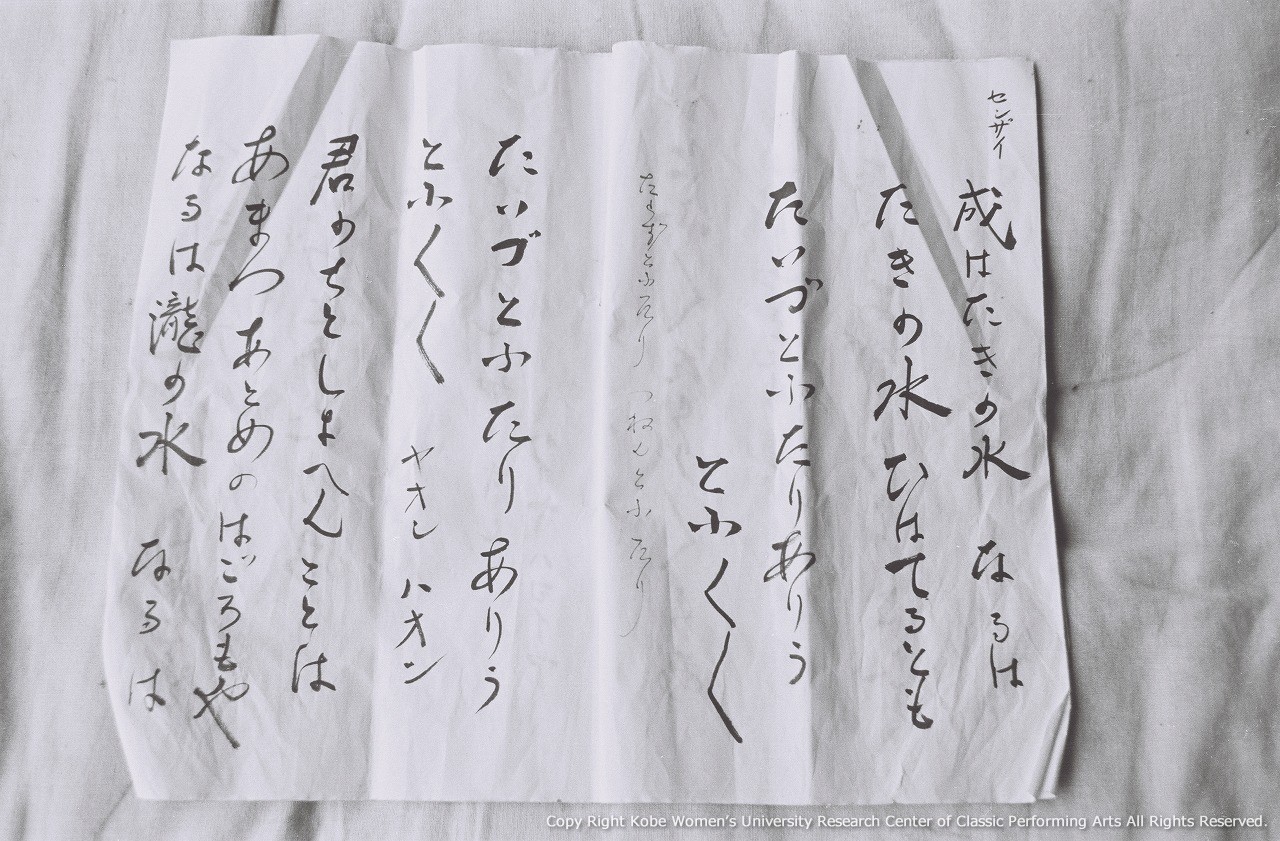 センザイ
成はたきの水 なるは
たきの水 ひはてるとも
たいづとふたりありう
とふ〱〱
たいづとふたりありう
とふ〱〱 ヤオン ハオン
君のちとしまへんことは
あまつあとめのはごろもや
なるは瀧の水 なるは
Copy Right Kobe Women's University Research Center of Classic Performing Arts All Rights Reserved.